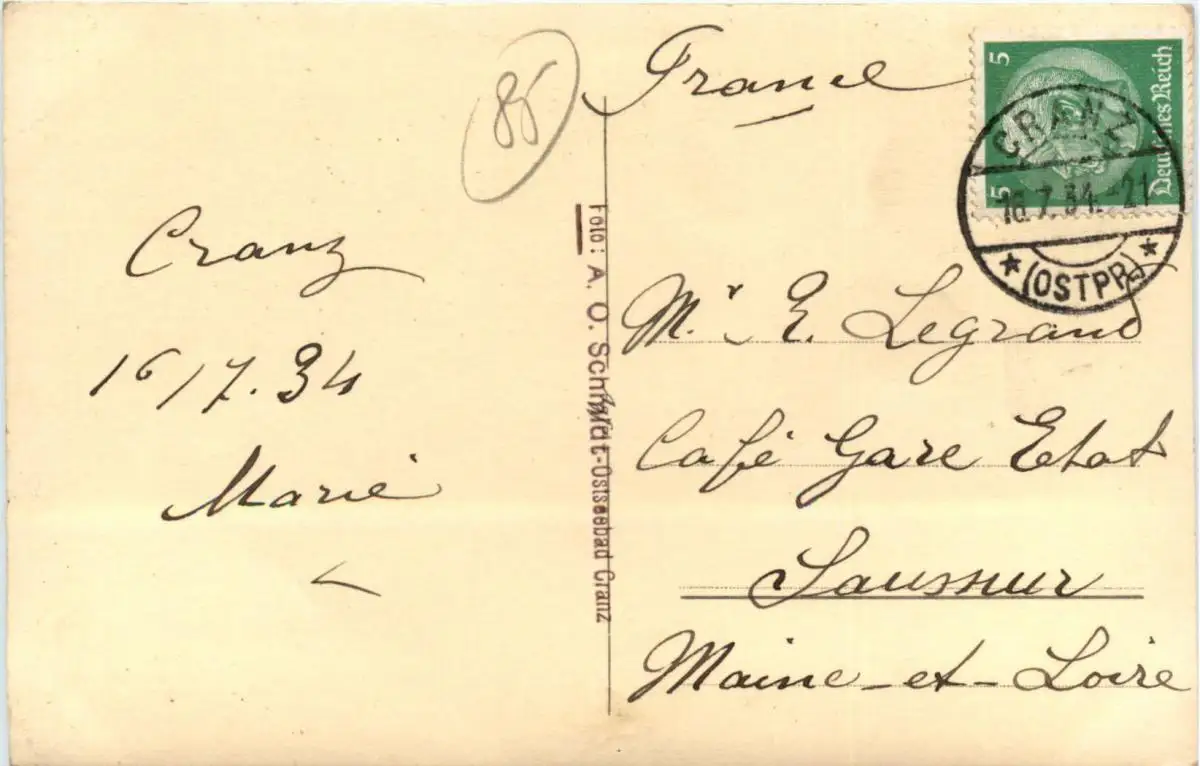 85
France
5
5
Deutsches Reich
CRANZ
16.7.34.-21
(OSTPR)
Cranz
16/7.34
Marie
Foto: A. O. Schmidt-Ostseebad Cranz
Mr E. Legrand
Café Gare Etat
Saussur
Maine-et-Loire